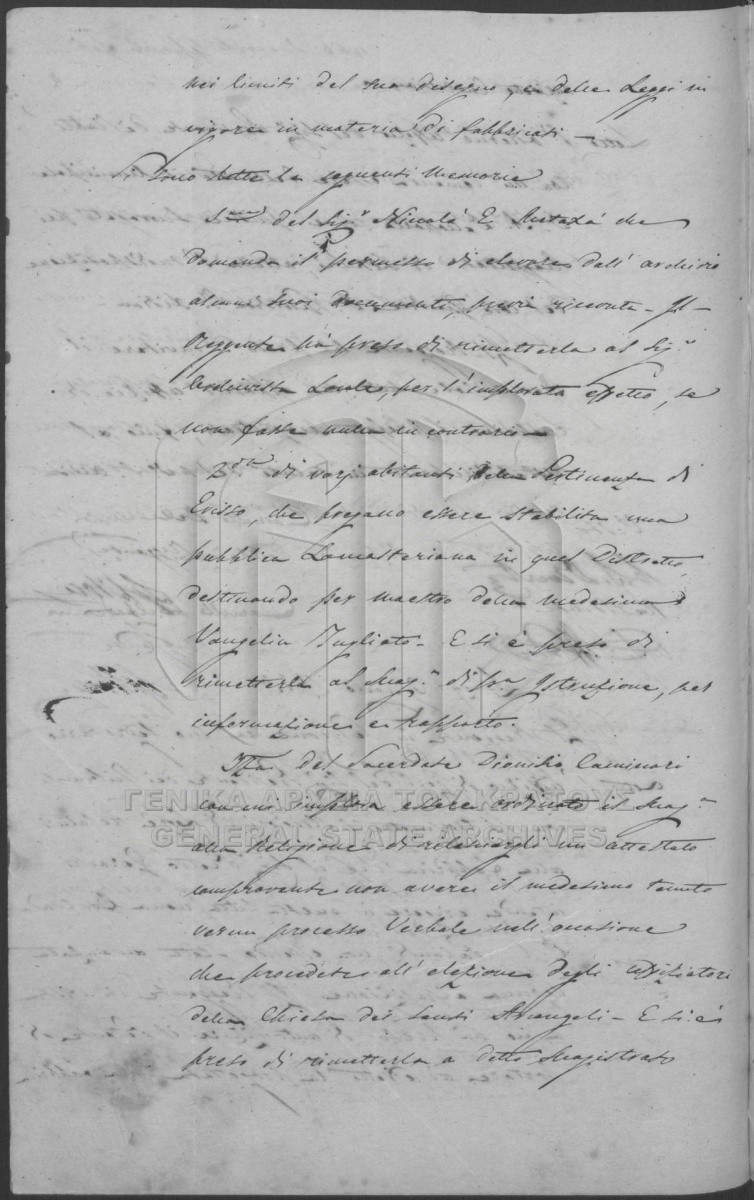 nei limiti del suo disegno, e delle Leggi in
vigore in materia di fabbricati —
Si sono lette le seguenti Memorie
1.ma del Sig.r Niccolò E. Metaxà che
domanda il permesso di elevare dall' archivio
alcuni suoi documenti, previa ricevuta — Il
Reggente ha preso di rimetterla al Sig.r
Archivista Locale, per l'implorato effetto, se
non fosse nulla in contrario —
2.da di varj abitanti della Pertinenza di
Erisso, che pregano essere stabilita una
pubblica Lancasteriana in quel Distretto,
destinando per maestro della medesima
Vangelin — E si è preso di
rimetterla al Mag.o di p.a Istruzione, per
informazione e rapporto.
3.za del Sacerdote Dionisio Caminari
con cui implora essere ordinato il Mag.o
alla Religione di rilasciargli un attestato
comprovante non avere il medesimo tenuto
verun processo Verbale nell' occasione
che procedete all' elezione degli
della Chiesa dei Santi Arangeli — E si è
preso di rimetterla a detto Magistrato
ΓΕΝΙΚΑ ΑΡΧΕΙΑ ΤΟΥ ΚΡΑΤΟΥΣ
GENERAL STATE ARCHIVES